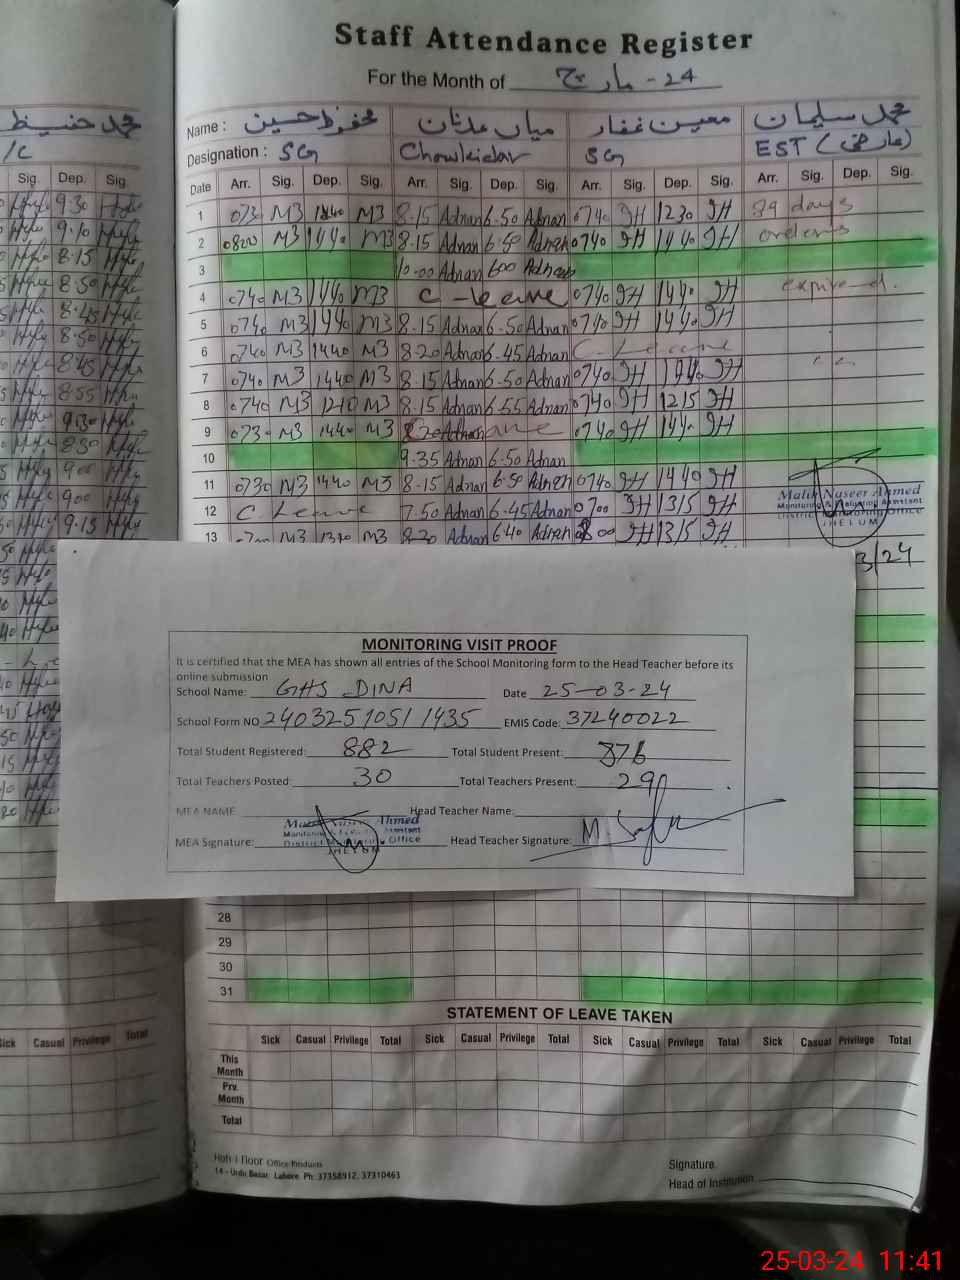 Staff Attendance Register
For the Month of مارچ - 24
محمد حفیظ
/C
Sig. Dep. Sig.
9.30
9.10
8.15
8.50
8.45
8.50
8.45
8.55
9.30
8.30
9.00
9.00
9.15
Name : محفوظ حسین میاں عدنان معین غفار محمد سلیمان
Designation : SG Chowkidar SG EST (عارضی)
Date Arr. Sig. Dep. Sig. Arr. Sig. Dep. Sig. Arr. Sig. Dep. Sig. Arr. Sig. Dep. Sig.
1 0730 M3 1240 M3 8.15 Adnan 6.50 Adnan 0740 JH 1230 JH 89 days
2 0800 M3 1440 M3 8.15 Adnan 6.50 Adnan 0740 JH 1440 JH orders
3 10.00 Adnan 600 Adnan
4 0740 M3 1440 M3 C-leave 0740 JH 1440 JH expired.
5 0740 M3 1440 M3 8.15 Adnan 6.50 Adnan 0740 JH 1440 JH
6 0740 M3 1440 M3 8.20 Adnan 6.45 Adnan C. Leave
7 0740 M3 1440 M3 8.15 Adnan 6.50 Adnan 0740 JH 1440 JH
8 0740 M3 1210 M3 8.15 Adnan 6.55 Adnan 0740 JH 1215 JH
9 0730 M3 1440 M3 0740 JH 1440 JH
10 9.35 Adnan 6.50 Adnan
11 0730 M3 1440 M3 8.15 Adnan 6.50 Adnan 0740 JH 1440 JH
12 C Leave 7.50 Adnan 6.45 Adnan 0700 JH 1315 JH
13 M3 1310 M3 8.20 Adnan 6.40 Adnan 00 JH 1315 JH
Malik Naseer Ahmed
Monitoring & Evaluating Assistant
District Monitoring Office
JHELUM
3/24
MONITORING VISIT PROOF
It is certified that the MEA has shown all entries of the School Monitoring form to the Head Teacher before its
online submission
School Name: GHS DINA Date 25-03-24
School Form NO 2403251051/1435 EMIS Code: 37240022
Total Student Registered: 882 Total Student Present: 876
Total Teachers Posted: 30 Total Teachers Present: 29
MEA NAME Head Teacher Name:
Malik Naseer Ahmed
Monitoring & Evaluating Assistant
District Monitoring Office
JHELUM
MEA Signature: Head Teacher Signature:
28
29
30
31
STATEMENT OF LEAVE TAKEN
Sick Casual Privilege Total Sick Casual Privilege Total Sick Casual Privilege Total Sick Casual Privilege Total
Sick Casual Privilege Total
This Month
Prv. Month
Total
Office Products
14 - Urdu Bazar, Lahore. Ph: 37358912, 37310463
Signature.
Head of Institution
25-03-24 11:41